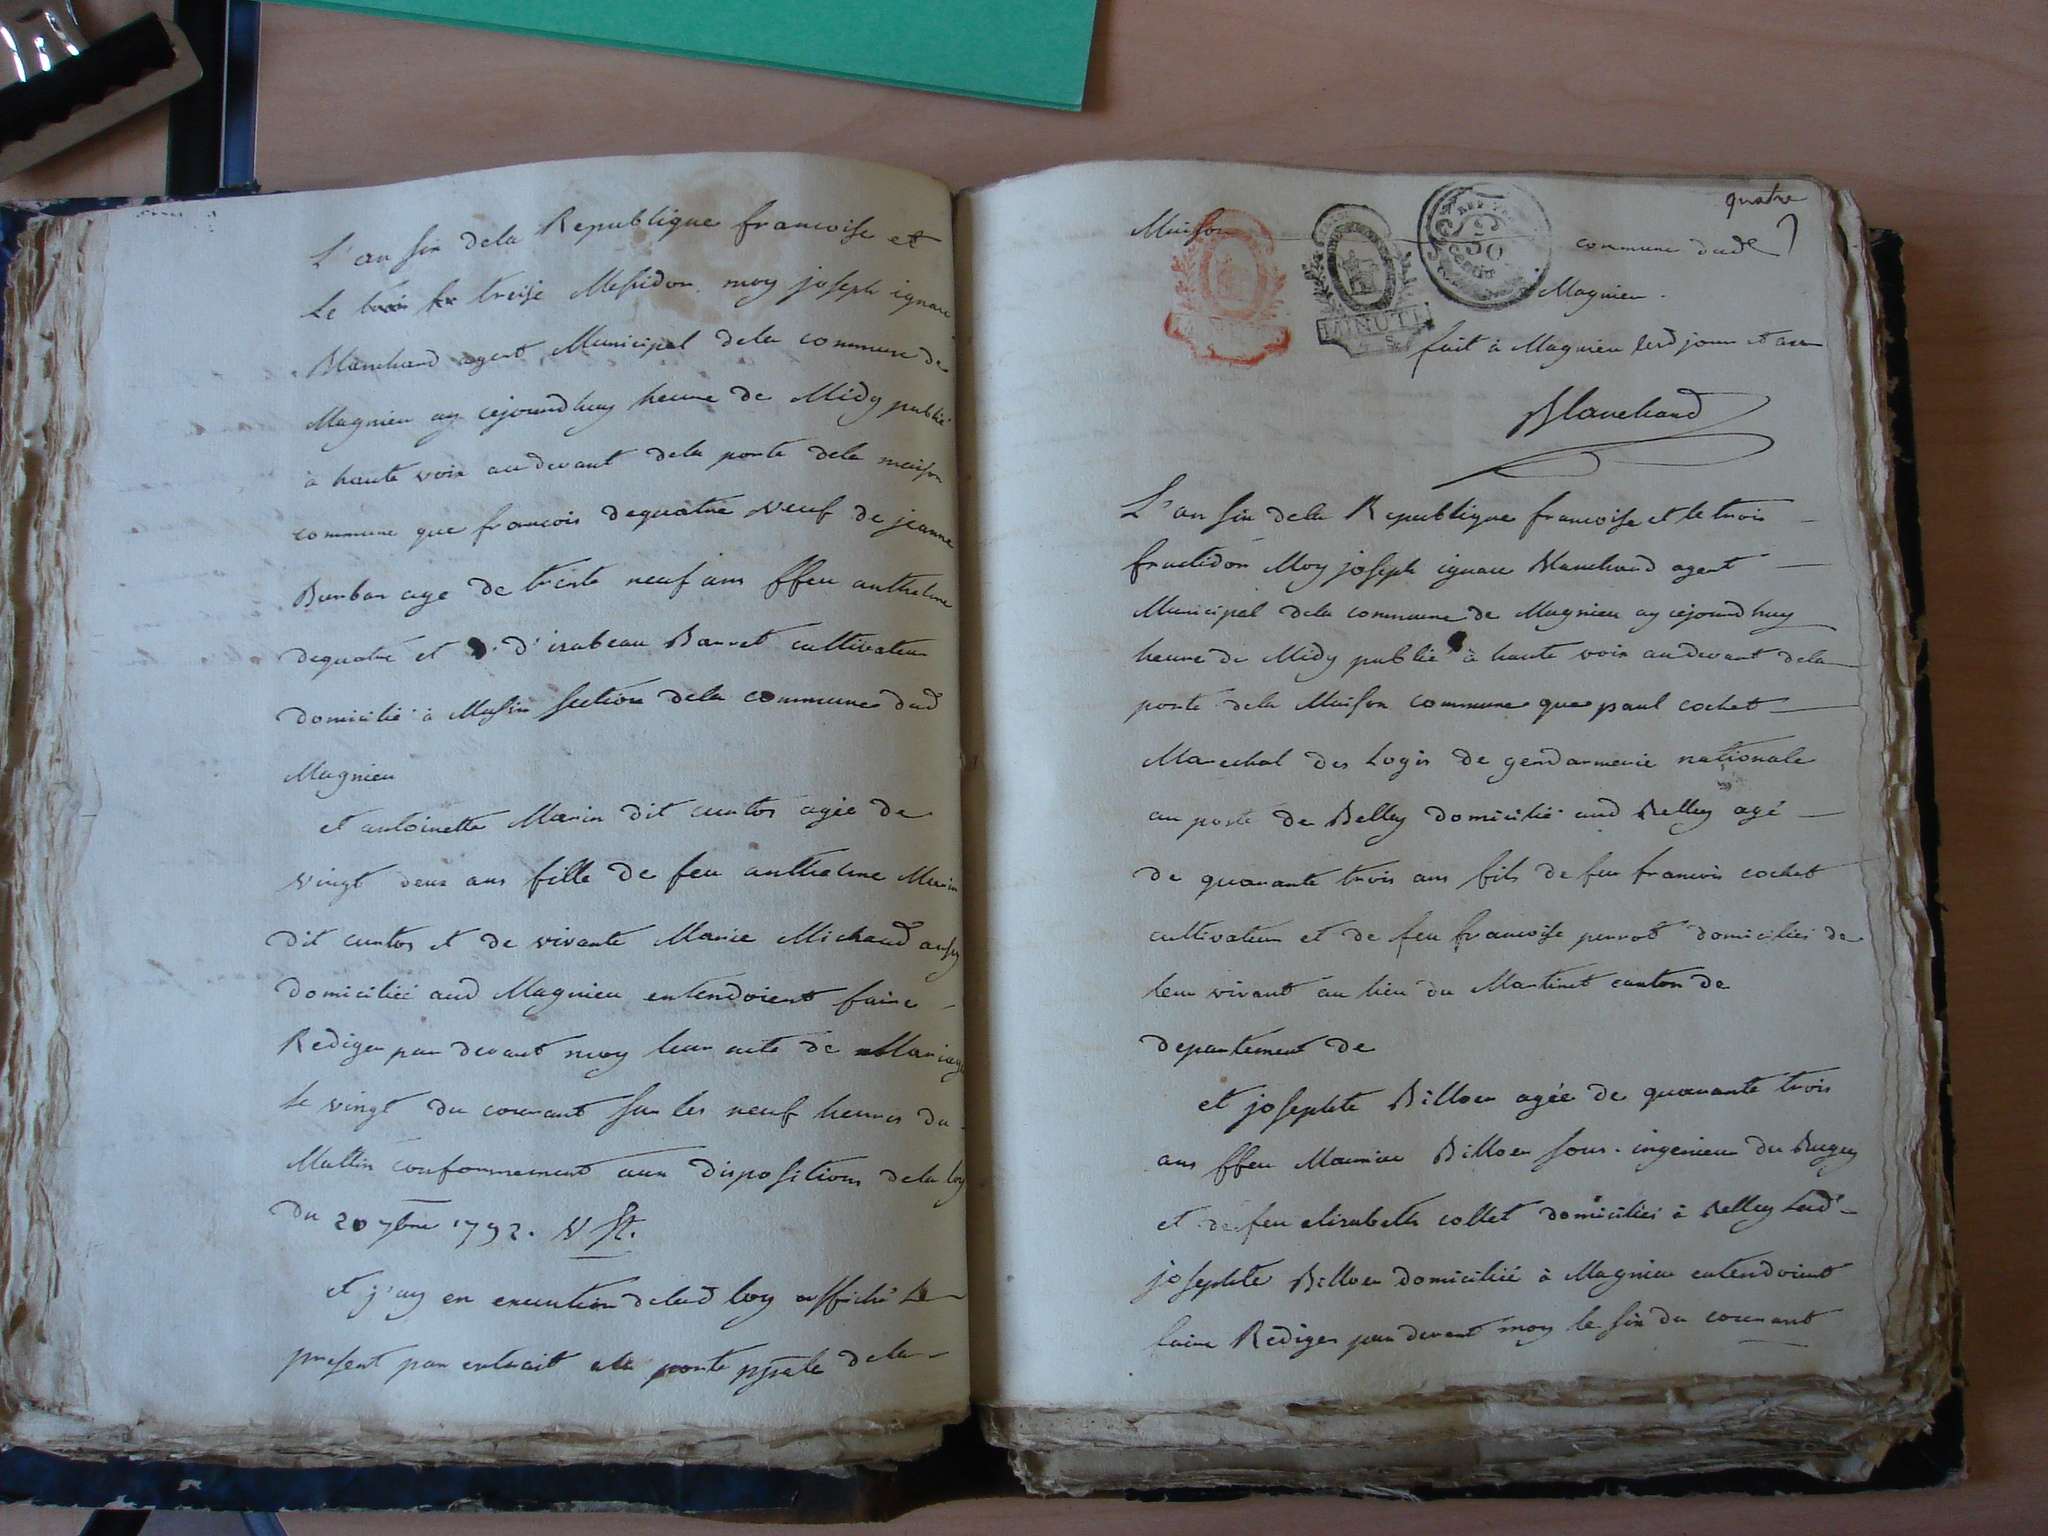 L'an six dela Republique francoise et
Le treise Messidor, moy joseph ignace
Blanchard agent Municipal dela commune de
Magnieu ay cejourdhuy heure de Midy publié
à haute voix audevant dela porte dela maison
commune que francois dequatre veuf de jeanne
Burbar age de trente neuf ans ffeu anthelme
dequatre et d'isabeau Barret cultivateur
domicilié à Musin section dela commune dud
Magnieu
et antoinette Marin dit cuntos agée de
vingt deux ans fille de feu anthelme Marin
dit cuntos et de vivante Marie Michaud aussy
domiciliée aud Magnieu entendoient faire
Rediger par devant moy leur acte de Mariage
le vingt du courant sur les neuf heures du
Mattin conformement aux dispositions dela loy
du 20 7bre 1792. V st.
et j'ay en execution delad loy affiché Le
present par extrait ala porte pple dela
quatre
Maison commune dud
Magnieu.
MINUTE
50
fait à Magnieu lesd jour et an
Blanchard
L'an six dela Republique francoise et le trois
fructidor Moy joseph ignace Blanchard agent
Municipal dela commune de Magnieu ay cejourdhuy
heure de Midy publié à haute voix audevant dela
porte dela Maison commune que paul cochet
Marechal des Logis de gendarmerie nationale
au poste de Belley domicilié aud Belley agé
de quarante trois ans fils de feu francois cochet
cultivateur et de feu francoise perrod domiciliés de
leur vivant au lieu du Martinet canton de
departement de
et josephte Billoen agée de quarante trois
ans ffeu Maurice Billoen sous-ingenieur du Bugey
et de feu elisabeth collet domiciliés à Belley Lad
josephte Billoen domiciliée à Magnieu entendoient
faire Rediger par devant moy le six du courant